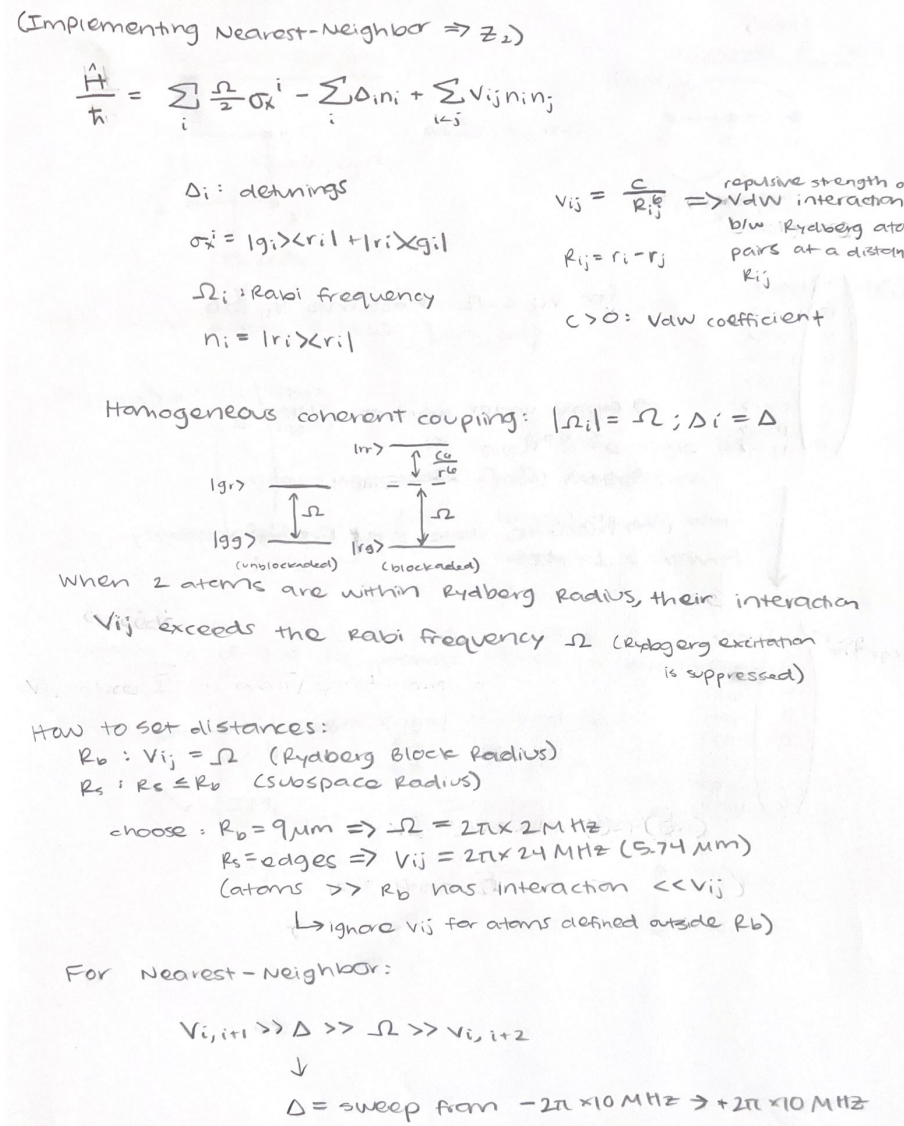 (Implementing Nearest-Neighbor ⇒ Z₂)
Ĥ/ħ = Σ_i Ω/2 σₓⁱ - Σ_i Δᵢnᵢ + Σ_{i<j} Vᵢⱼnᵢnⱼ
Δᵢ: detunings
σₓⁱ = |gᵢ><rᵢ| + |rᵢ><gᵢ|
Ωᵢ: Rabi frequency
nᵢ = |rᵢ><rᵢ|
Vᵢⱼ = C/Rᵢⱼ⁶ ⇒ repulsive strength o
VdW interaction
b/w Rydberg ato
pairs at a distan
Rᵢⱼ
Rᵢⱼ = rᵢ - rⱼ
C > 0: VdW coefficient
Homogeneous coherent coupling: |Ωᵢ| = Ω ; Δi = Δ
|rr>
C₆/r⁶
|gr>
Ω
Ω
|gg>
|rg>
(unblockaded)
(blockaded)
When 2 atoms are within Rydberg Radius, their interaction
Vᵢⱼ exceeds the Rabi frequency Ω (Rydbgerg excitation
is suppressed)
How to set distances:
R_b : Vᵢⱼ = Ω (Rydberg Block Radius)
Rₛ : Rₛ ≤ R_b (subspace Radius)
choose : R_b = 9μm ⇒ Ω = 2π × 2 MHz
Rₛ = edges ⇒ Vᵢⱼ = 2π × 24 MHz (5.74 μm)
(atoms >> R_b has interaction << Vᵢⱼ
↳ ignore Vᵢⱼ for atoms defined outside R_b)
For Nearest-Neighbor:
V_{i,i+1} >> Δ >> Ω >> V_{i,i+2}
↓
Δ = sweep from -2π × 10 MHz → +2π × 10 MHz